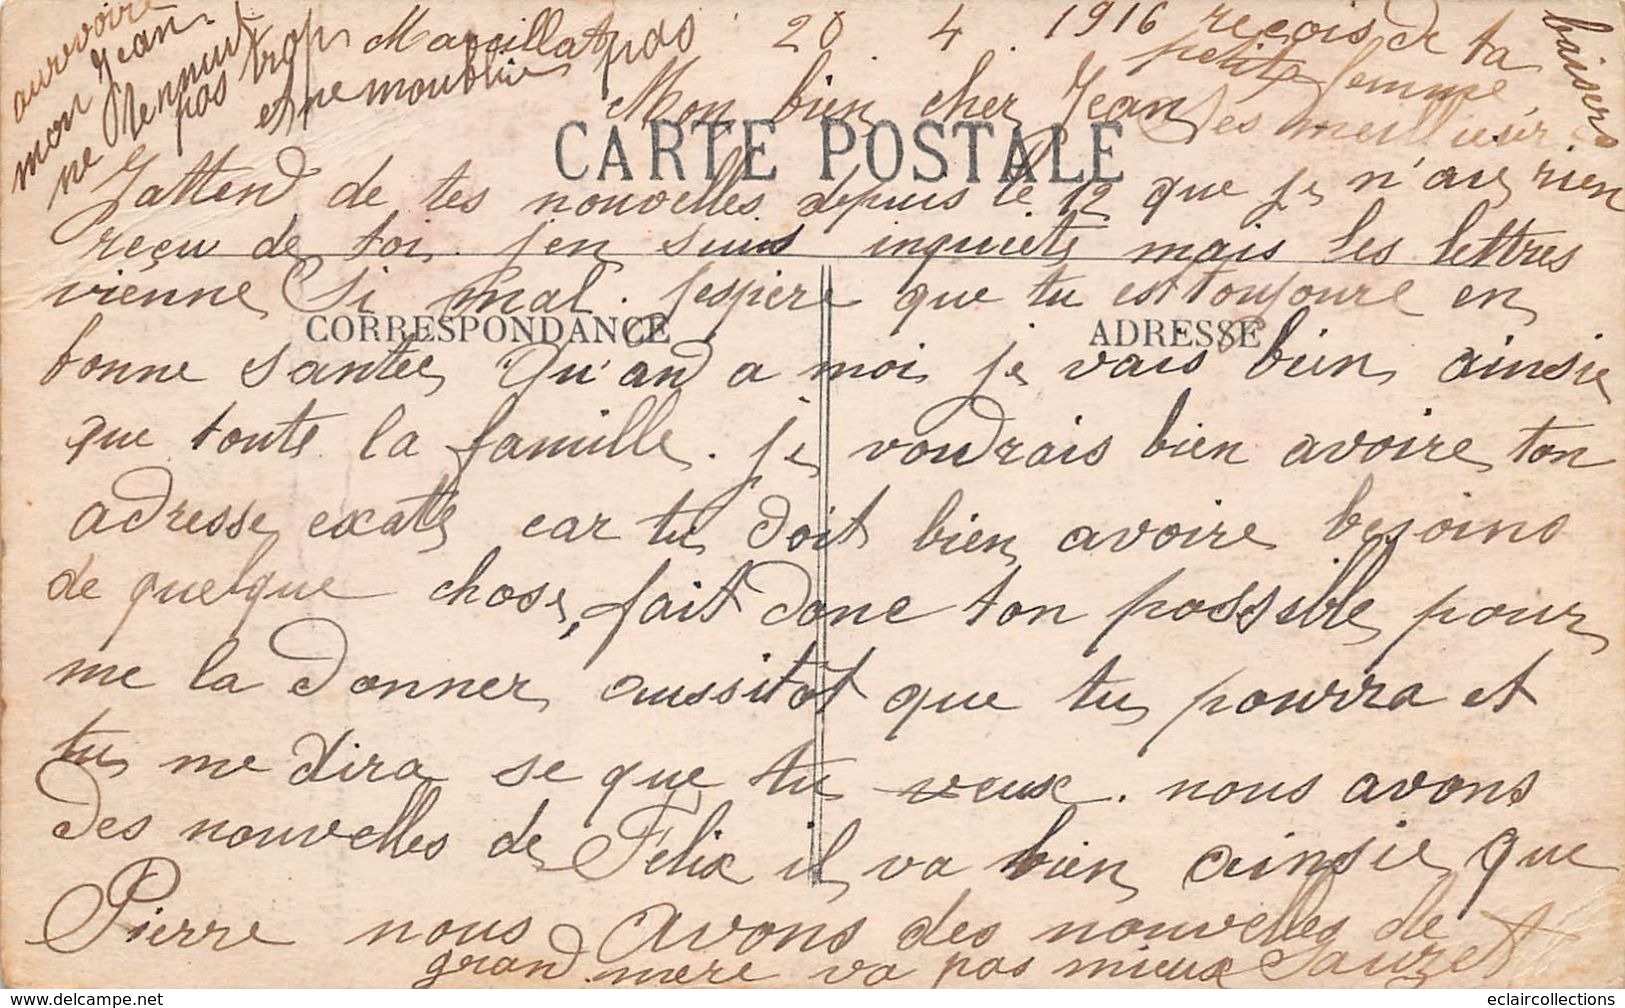 Marcillat 20 . 4 . 1916
Mon bien cher Jean
CARTE POSTALE
J'attend de tes nouvelles depuis le 12 que je n'ais rien
reçu de toi. j'en suis inquiete mais les lettres
vienne si mal. j'espere que tu est toujoure en
CORRESPONDANCE
ADRESSE
bonne santée Qu'and a moi je vais bien ainsie
que toute la famille. je voudrais bien avoire ton
adresse exatte car tu doit bien avoire besoins
de quelque chose, fait donc ton possible pour
me la donner aussitôt que tu pourra et
tu me dira se que tu veux. nous avons
des nouvelles de Felix il va bien ainsie que
Pierre nous avons des nouvelles de Sauzet
grand mere va pas mieux
recois de ta
petite femme
ses meillieur
baisers
aurevoire
mon Jean
ne t'ennuit
pas trop
et ne moublie pas
eclaircollections